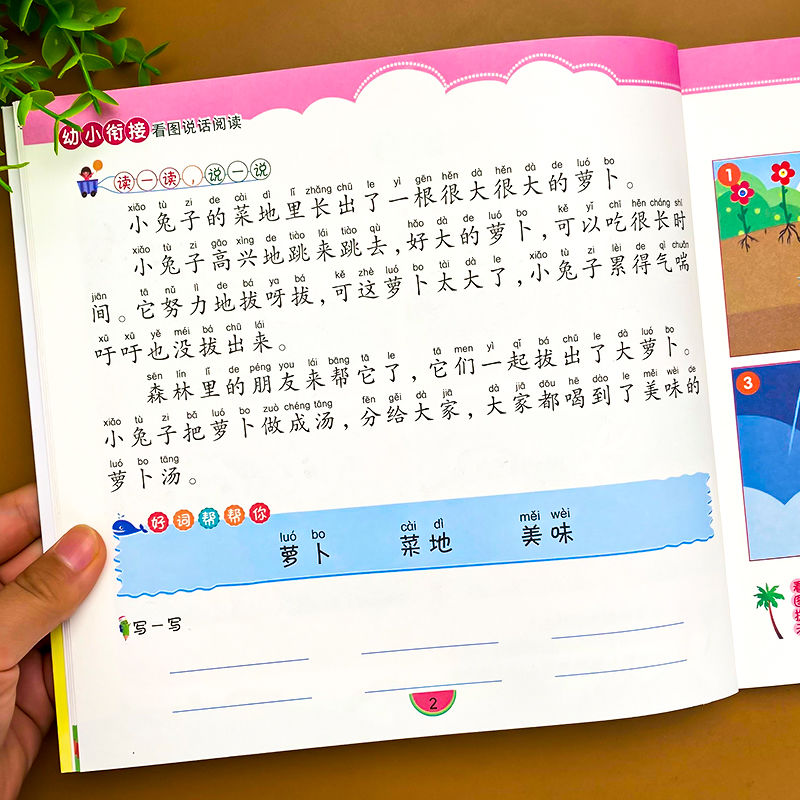 幼小衔接看图说话阅读
读一读，说一说
xiǎo tù zi de cài dì lǐ zhǎng chū le yì gēn hěn dà hěn dà de luó bo
小兔子的菜地里长出了一根很大很大的萝卜。
xiǎo tù zi gāo xìng de tiào lái tiào qù hǎo dà de luó bo kě yǐ chī hěn cháng shí
小兔子高兴地跳来跳去，好大的萝卜，可以吃很长时
jiān tā nǔ lì de bá ya bá kě zhè luó bo tài dà le xiǎo tù zi lèi de qì chuǎn
间。它努力地拔呀拔，可这萝卜太大了，小兔子累得气喘
xū xū yě méi bá chū lái
吁吁也没拔出来。
sēn lín lǐ de péng you lái bāng tā le tā men yì qǐ bá chū le dà luó bo
森林里的朋友来帮它了，它们一起拔出了大萝卜。
xiǎo tù zi bǎ luó bo zuò chéng tāng fēn gěi dà jiā dà jiā dōu hē dào le měi wèi de
小兔子把萝卜做成汤，分给大家，大家都喝到了美味的
luó bo tāng
萝卜汤。
好词帮帮你
luó bo cài dì měi wèi
萝卜 菜地 美味
写一写
2
1
3